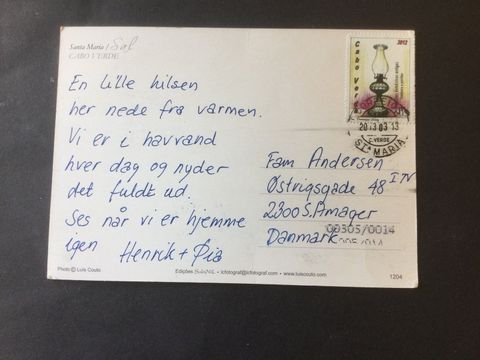 Santa Maria / Sal
CABO VERDE
En Lille hilsen
her nede fra varmen.
Vi er i havvand
hver dag og nyder
det fuldt ud.
Ses når vi er hjemme
igen Henrik + Pia
Cabo Verde
2012
20 13 03 13
C. VERDE
STA MARIA
Fam Andersen
Østrigsgade 48 I TV
2300 S. Amager
Danmark
00305/0014
Photo © Luis Couto
Edições • lcfotograf@lcfotograf.com • www.luiscouto.com
1204